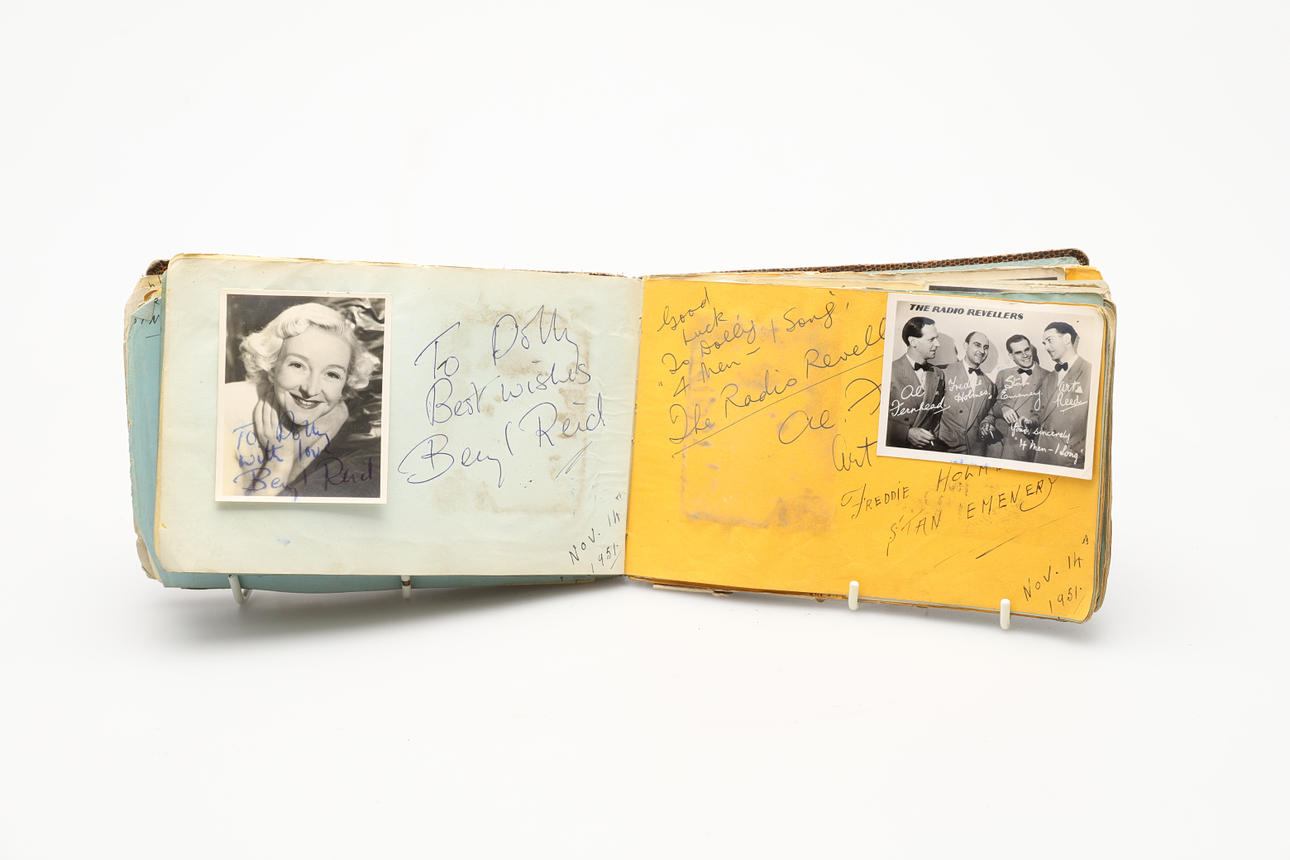 To Dolly
with love
Beryl Reid
To Dolly
Best wishes
Beryl Reid
NOV. 14
1951.
Good
Luck
To Dolly
"4 Men - 1 Song"
The Radio Revell
Al F
Art
FREDDIE HOLM
STAN EMENERY
NOV. 14
1951.
THE RADIO REVELLERS
Al
Fernhead
Freddie
Holmes
Stan
Emenery
Art
Reed
Yours sincerely
"4 Men - 1 Song"